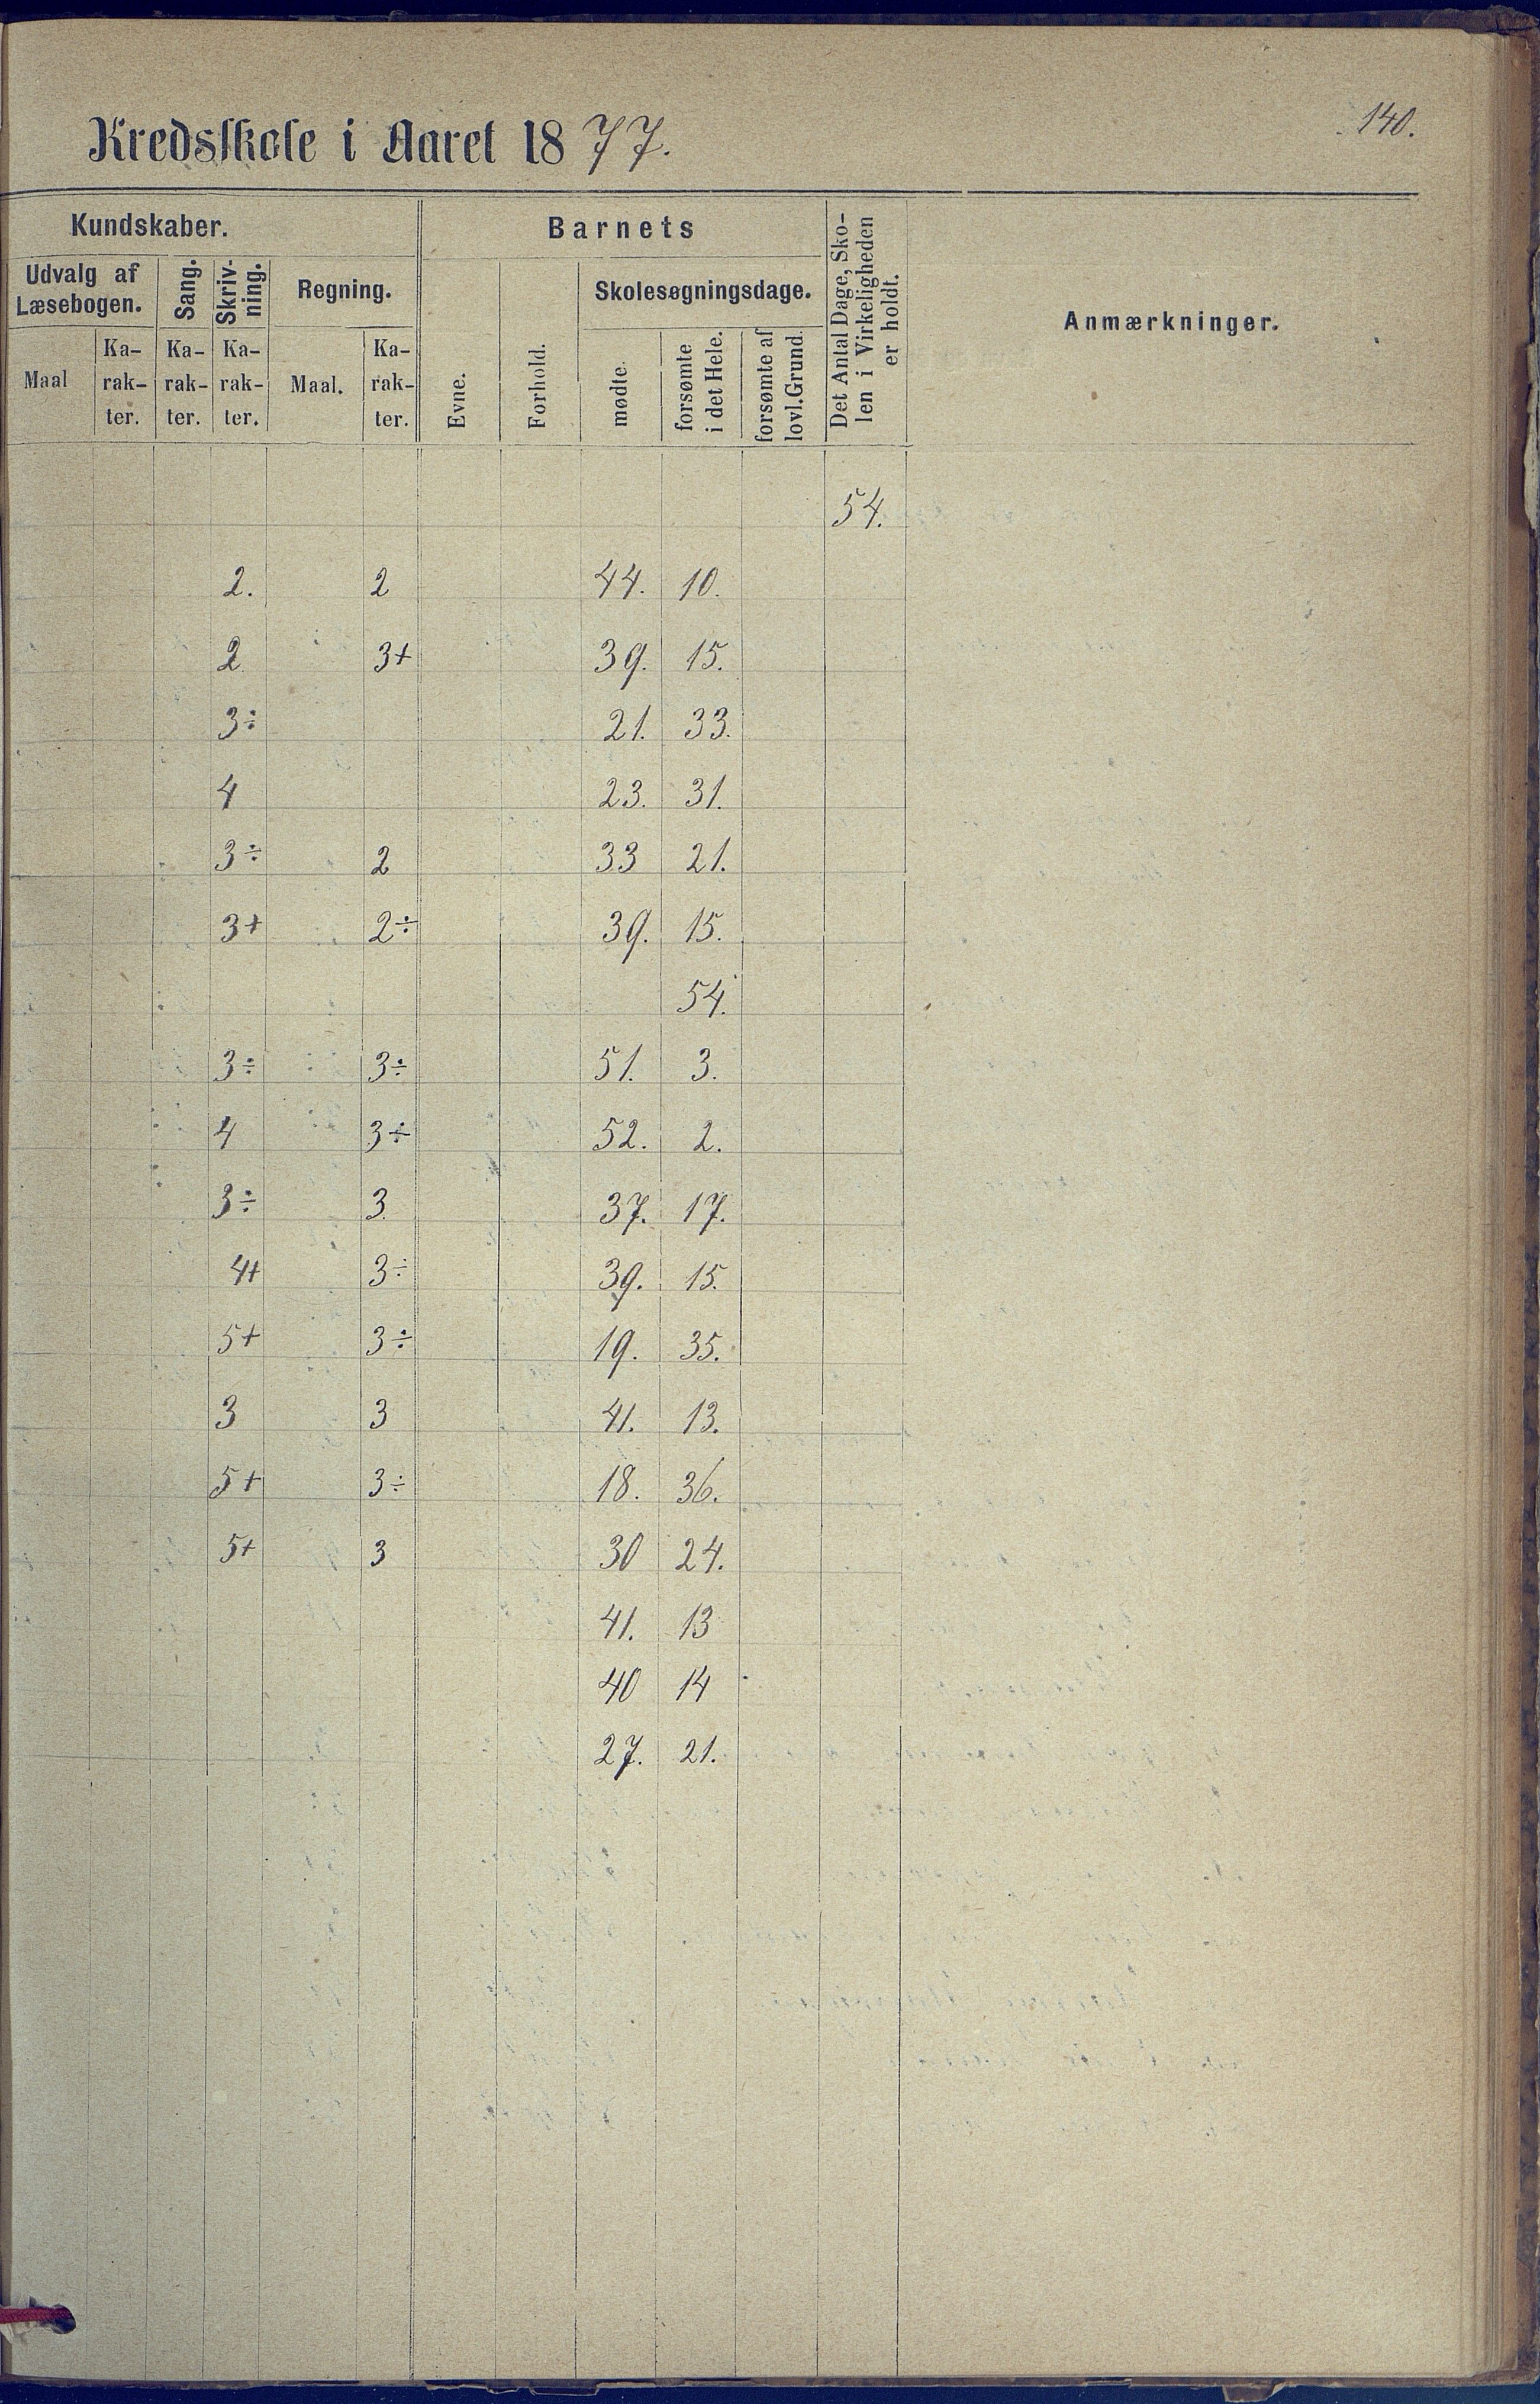 140.
Kredsskole i Aaret 1877.
Kundskaber.
Barnets
Det Antal Dage, Sko-
len i Virkeligheden
er holdt.
Anmærkninger.
Udvalg af
Læsebogen.
Sang.
Skriv-
ning.
Regning.
Evne.
Forhold.
Skolesøgningsdage.
Maal
Ka-
rak-
ter.
Ka-
rak-
ter.
Ka-
rak-
ter.
Maal.
Ka-
rak-
ter.
mødte.
forsømte
i det Hele.
forsømte af
lovl. Grund.
54.
2. 2 44. 10.
2 3+ 39. 15.
3÷ 21. 33.
4 23. 31.
3÷ 2 33 21.
3+ 2÷ 39. 15.
54.
3÷ 3÷ 51. 3.
4 3÷ 52. 2.
3÷ 3 37. 17.
4+ 3÷ 39. 15.
5+ 3÷ 19. 35.
3 3 41. 13.
5+ 3÷ 18. 36.
5+ 3 30 24.
41. 13
40 14
27. 21.